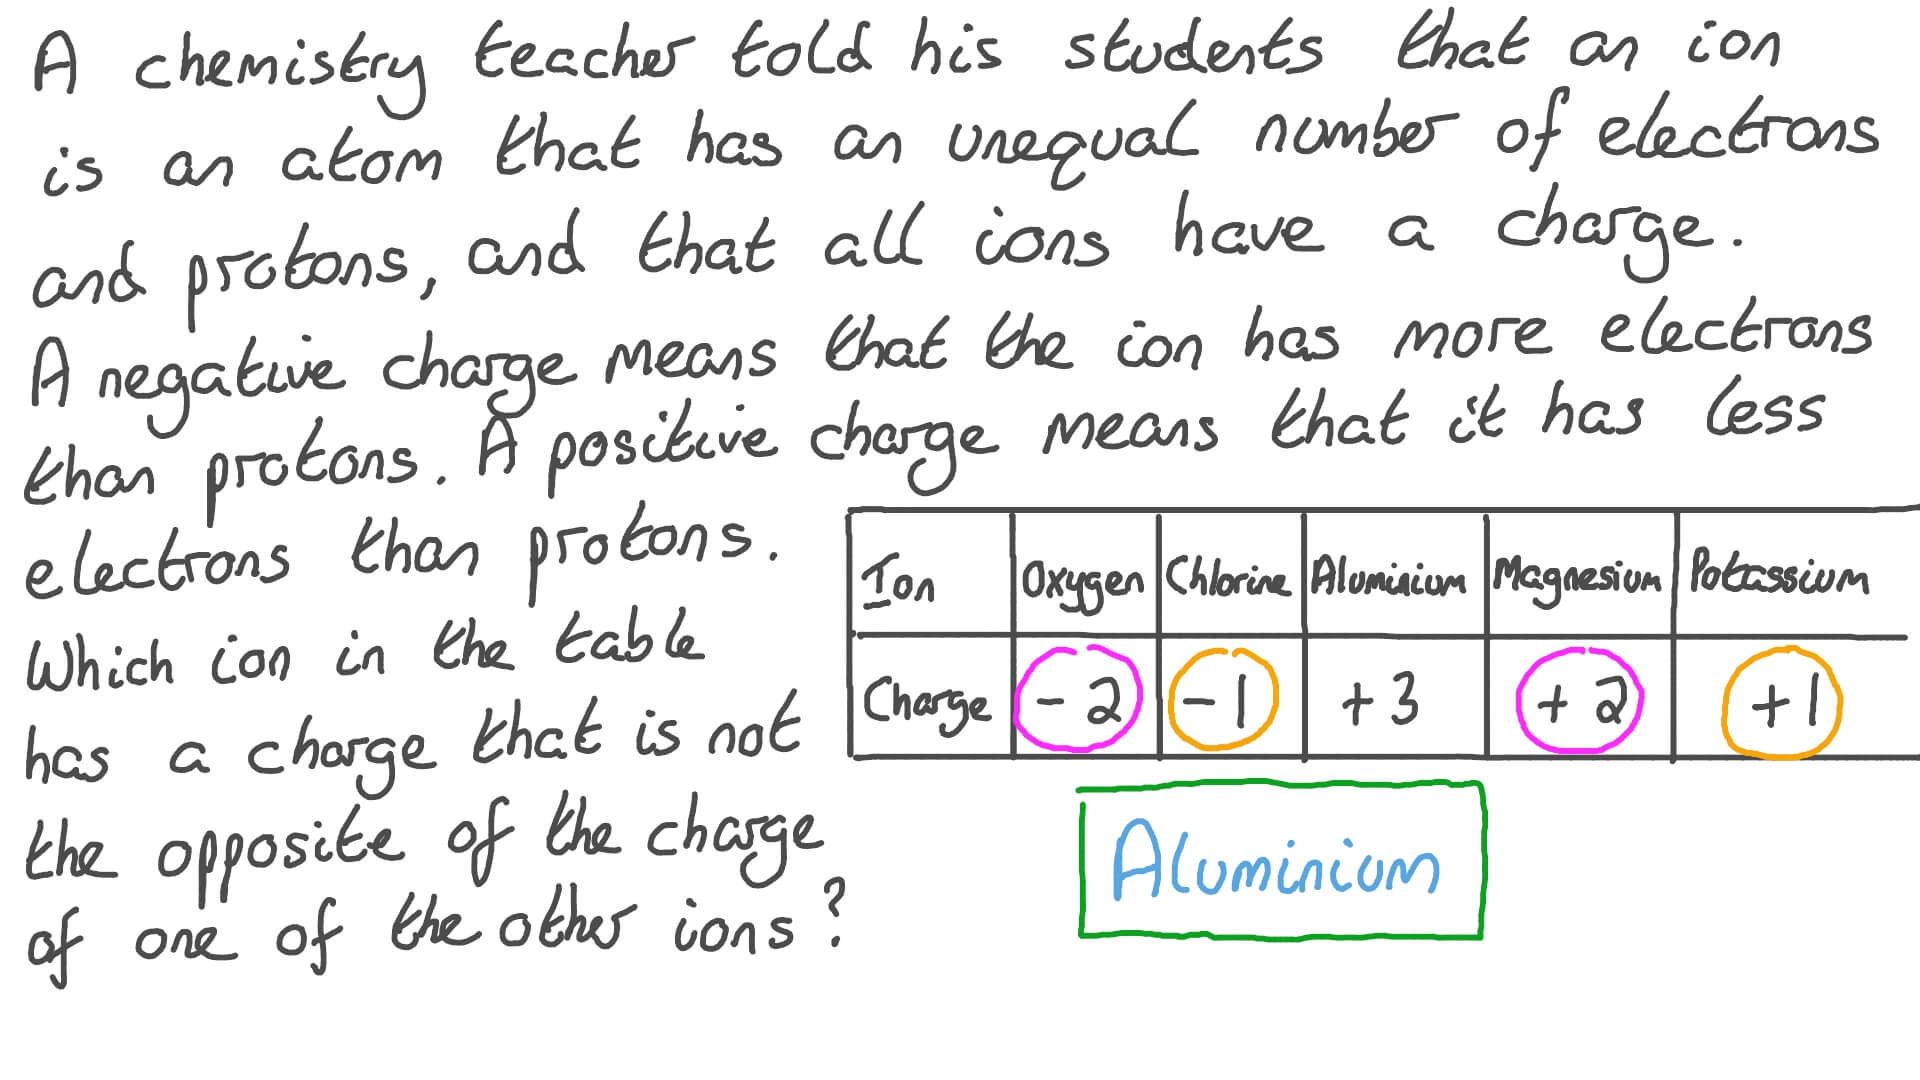 A chemistry teacher told his students that an ion
is an atom that has an unequal number of electrons
and protons, and that all ions have a charge.
A negative charge means that the ion has more electrons
than protons. A positive charge means that it has less
electrons than protons.
Which ion in the table
has a charge that is not
the opposite of the charge
of one of the other ions?
Ion Oxygen Chlorine Aluminium Magnesium Potassium
Charge -2 -1 +3 +2 +1
Aluminium